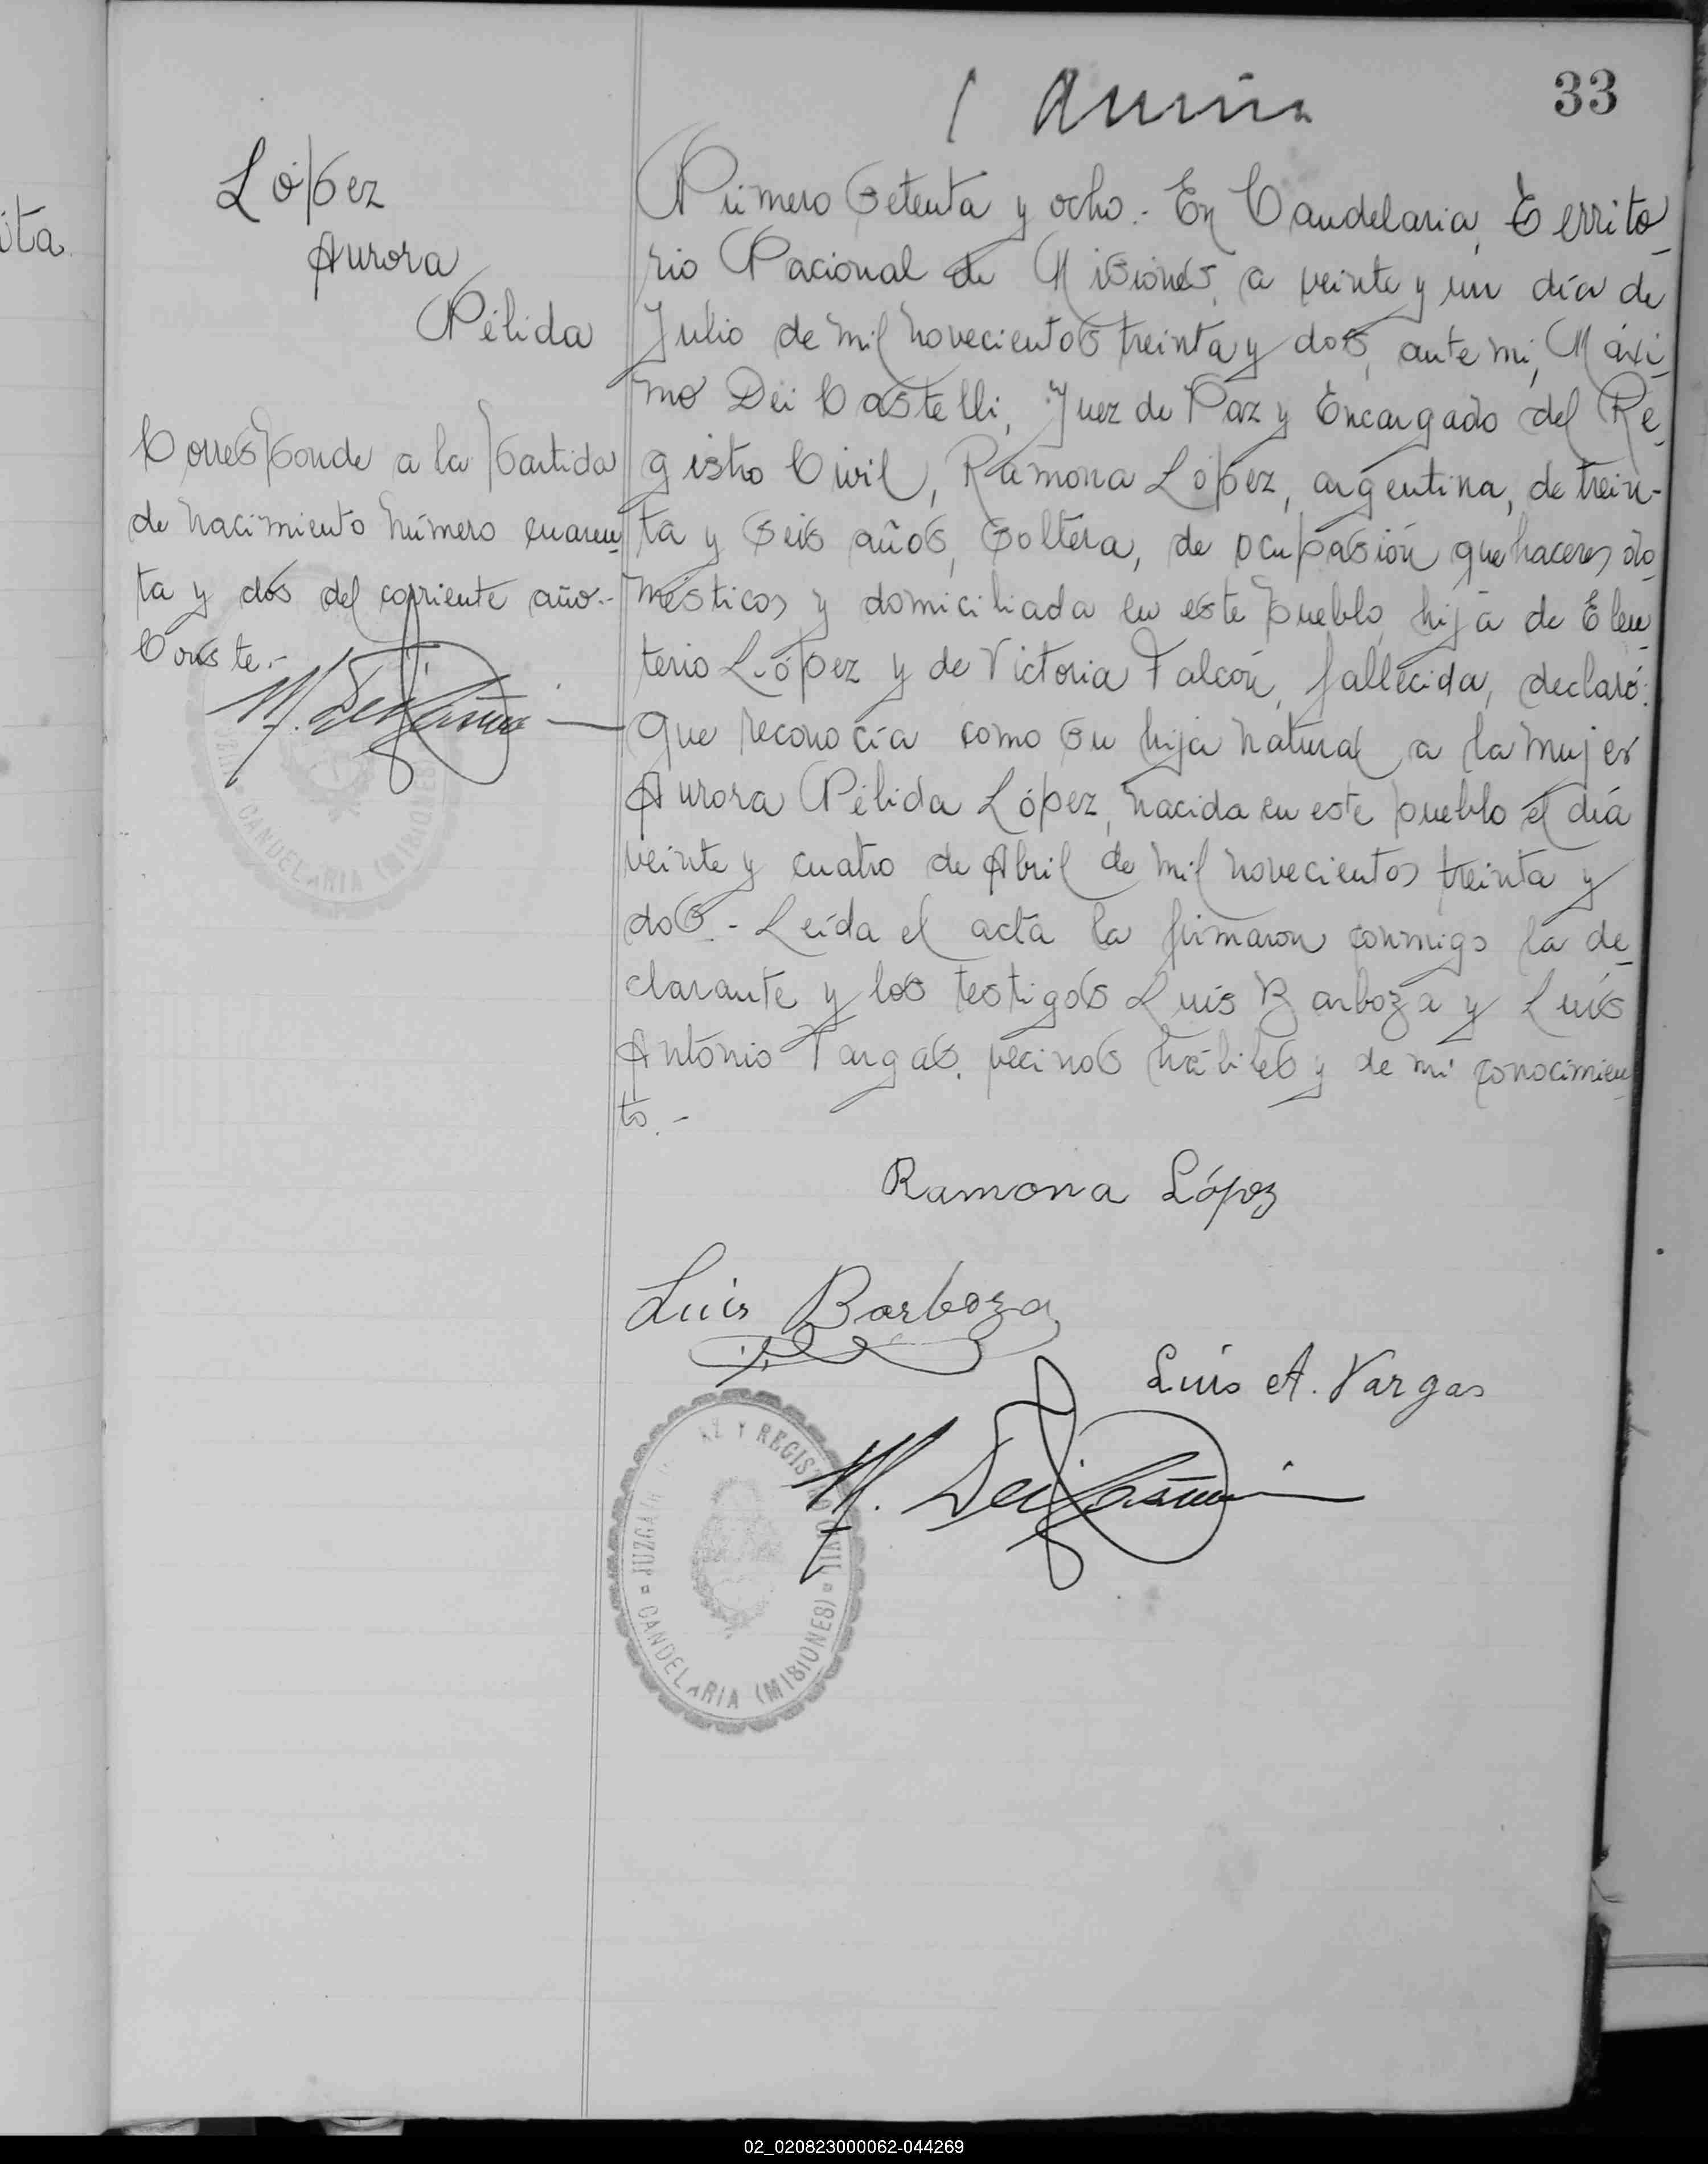 33
López
Aurora
Nélida
Corresponde a la partida
de nacimiento número cuaren
ta y dos del corriente año.-
Conste.-
Número Setenta y ocho.- En Candelaria, Territo
rio Nacional de Misiones, a veinte y un día de
Julio de mil novecientos treinta y dos, ante mi, Máxi
mo Dei Castelli, Juez de Paz y Encargado del Re
gistro Civil, Ramona López, argentina, de trein-
ta y seis años, soltera, de ocupasión quehaceres do
mésticos y domiciliada en este pueblo, hija de Eleu
terio López y de Victoria Falcón, fallecida, declaró:
Que reconocía como su hija natural a la mujer
Aurora Nélida López, nacida en este pueblo el día
veinte y cuatro de Abril de mil novecientos treinta y
dos.- Leída el acta la firmaron conmigo la de
clarante y los testigos Luis Barboza y Luis
Antonio Vargas, vecinos hábiles y de mi conocimien
to.-
Ramona López
Luis Barboza
Luis A. Vargas
M. Dei Castelli
JUZGADO Y REGISTRO CIVIL
CANDELARIA (MISIONES)
02_020823000062-044269